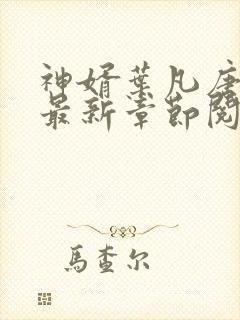 神婿葉凡唐
最新章節閱
馬查尔